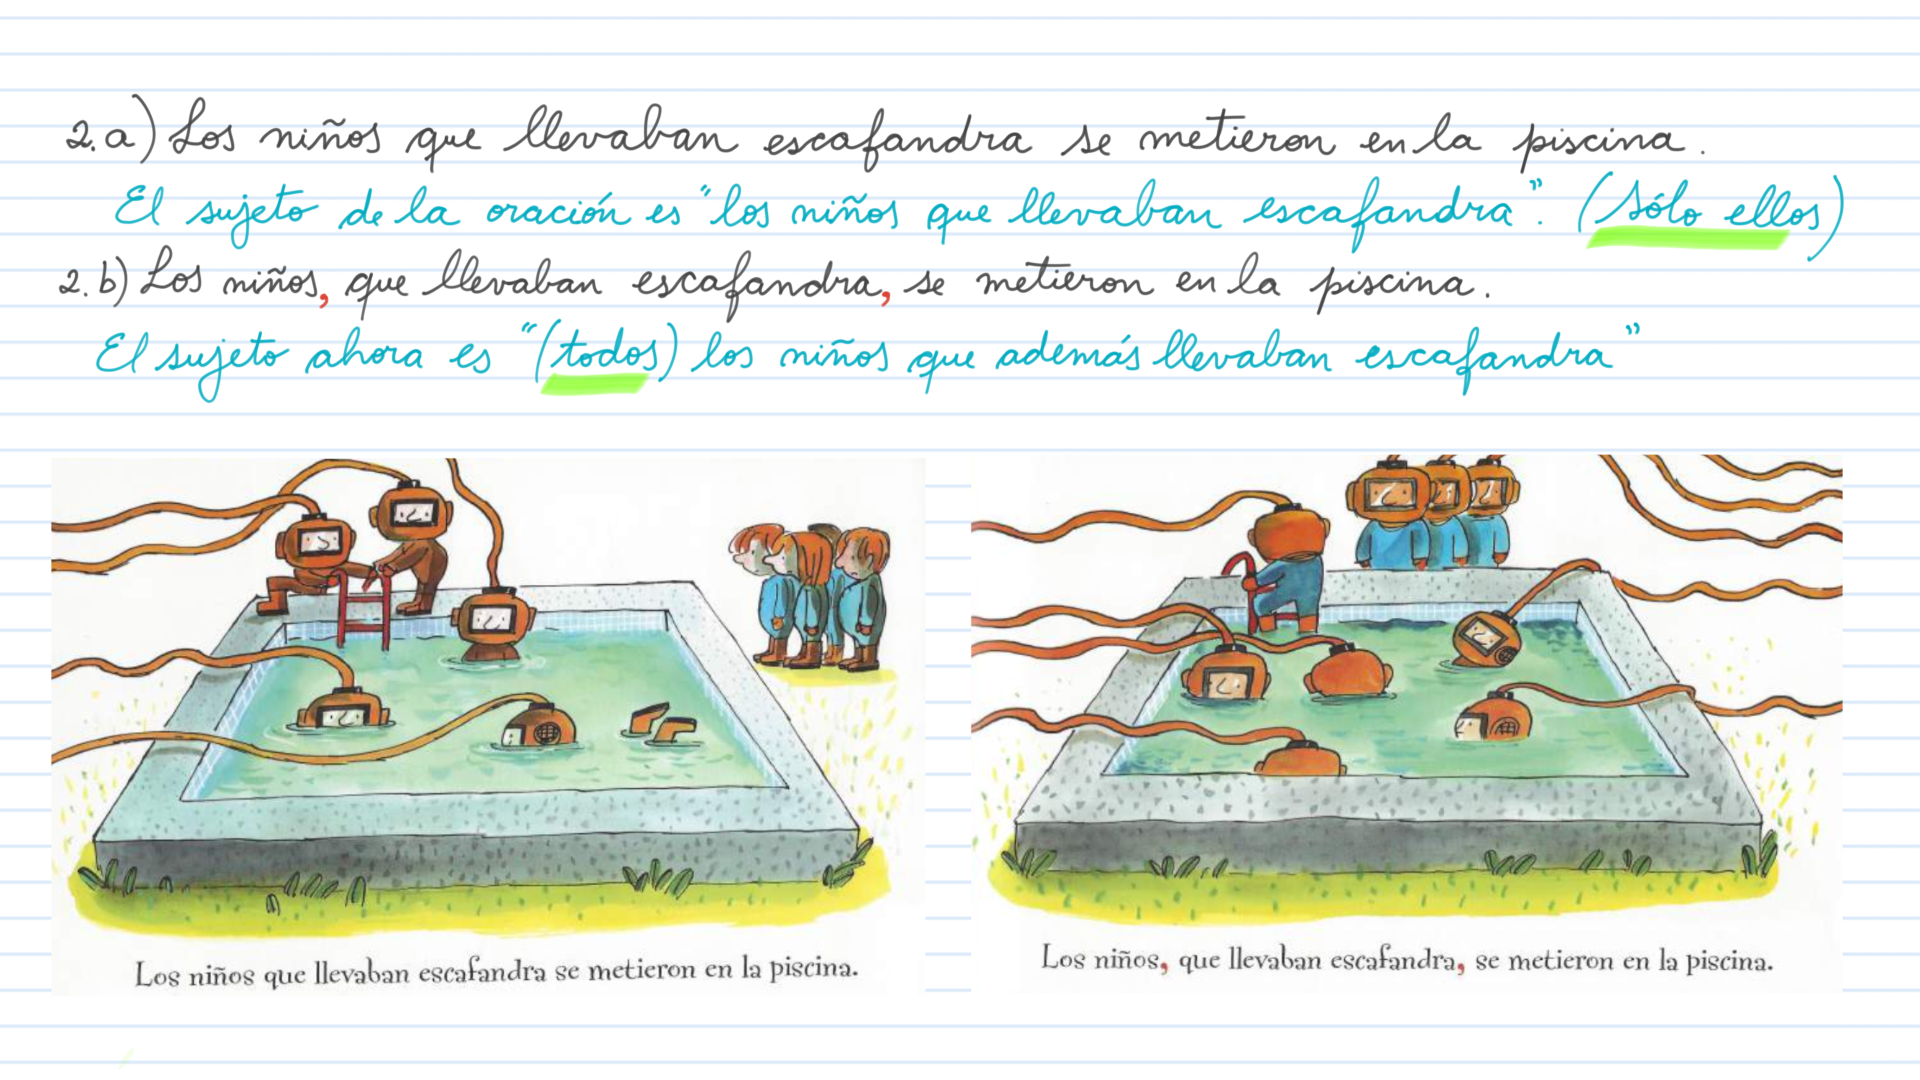 2.a) Los niños que llevaban escafandra se metieron en la piscina.
El sujeto de la oración es "los niños que llevaban escafandra". (Sólo ellos)
2.b) Los niños, que llevaban escafandra, se metieron en la piscina.
El sujeto ahora es "(todos) los niños que además llevaban escafandra"
Los niños que llevaban escafandra se metieron en la piscina.
Los niños, que llevaban escafandra, se metieron en la piscina.